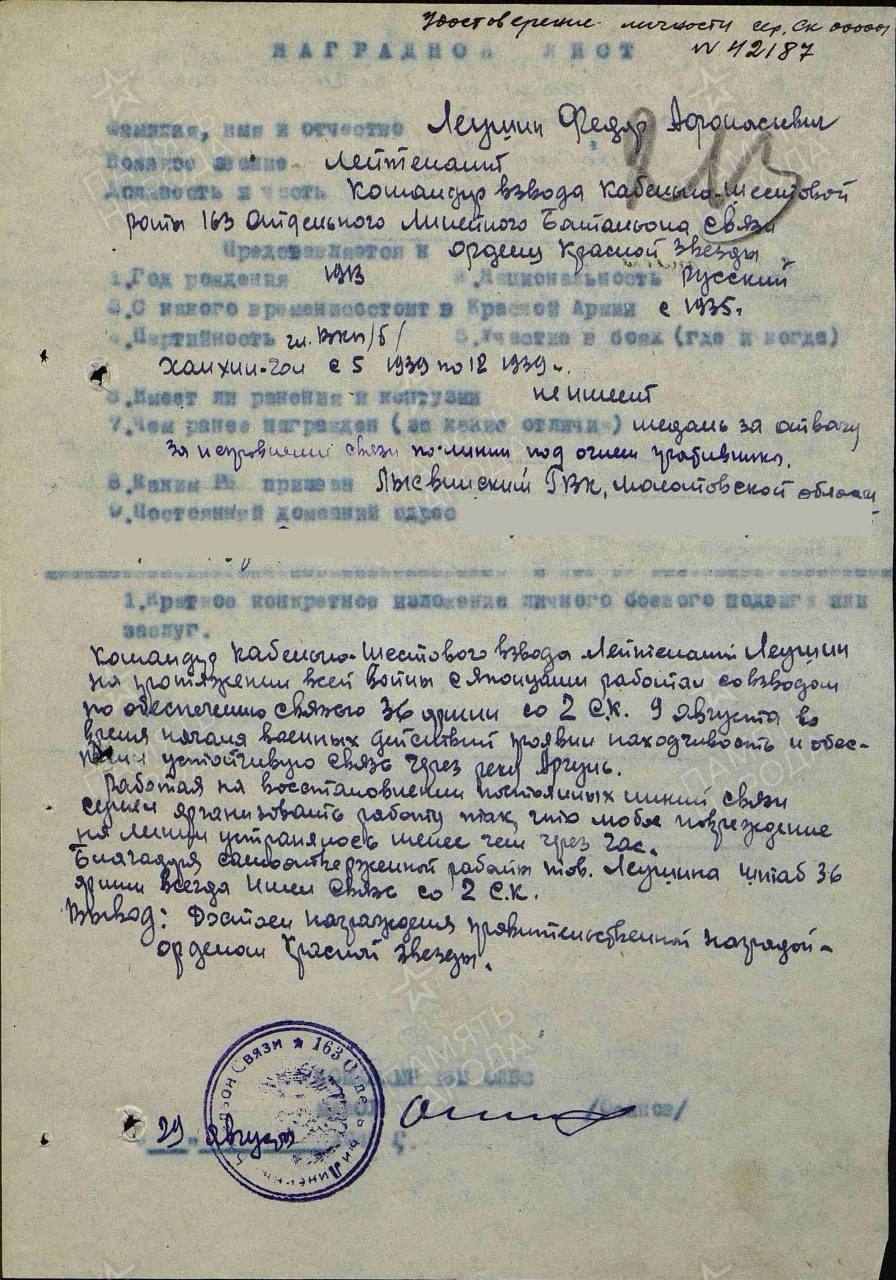 Удостоверение личности сер. СК 00001
№ 42187
НАГРАДНОЙ ЛИСТ
Фамилия, имя и отчество Леушин Федор Афонасьевич
Военное звание Лейтенант
Должность и часть Командир взвода Кабельно-Шестовой
роты 163 Отдельного Линейного Батальона Связи
Представляется к ордену Красной Звезды
1.Год рождения 1913 2.Национальность Русский
3.С какого времени состоит в Красной Армии с 1935г.
4.Партийность чл. ВКП/б/ 5.Участие в боях (где и когда)
Халхин-Гол с 5 1939 по 12 1939 г.
6.Имеет ли ранения и контузии не имеет
7.Чем ранее награжден (за какие отличия) медаль за отвагу
за исправление связи по линии под огнем противника.
8.Каким РВК призван Лысвинский ГВК, Молотовской области
9.Постоянный домашний адрес
1.Краткое конкретное изложение личного боевого подвига или
заслуг.
Командир Кабельно-Шестового взвода Лейтенант Леушин
на протяжении всей войны с Японцами работал со взводом
по обеспечению связью 36 армии со 2 С.К. 9 августа во
время начала военных действий проявил находчивость и обес-
печил устойчивую связь через реку Аргунь.
Работая на восстановлении постоянных линий связи
сумел организовать работу так, что любое повреждение
на линии устранялось менее чем через час.
Благодаря самоотверженной работы тов. Леушина штаб 36
армии всегда имел связь со 2 С.К.
Вывод: Достоин награждения правительственной наградой-
орденом Красной Звезды.
163 Отдельный Линейный Батальон Связи
29 августа